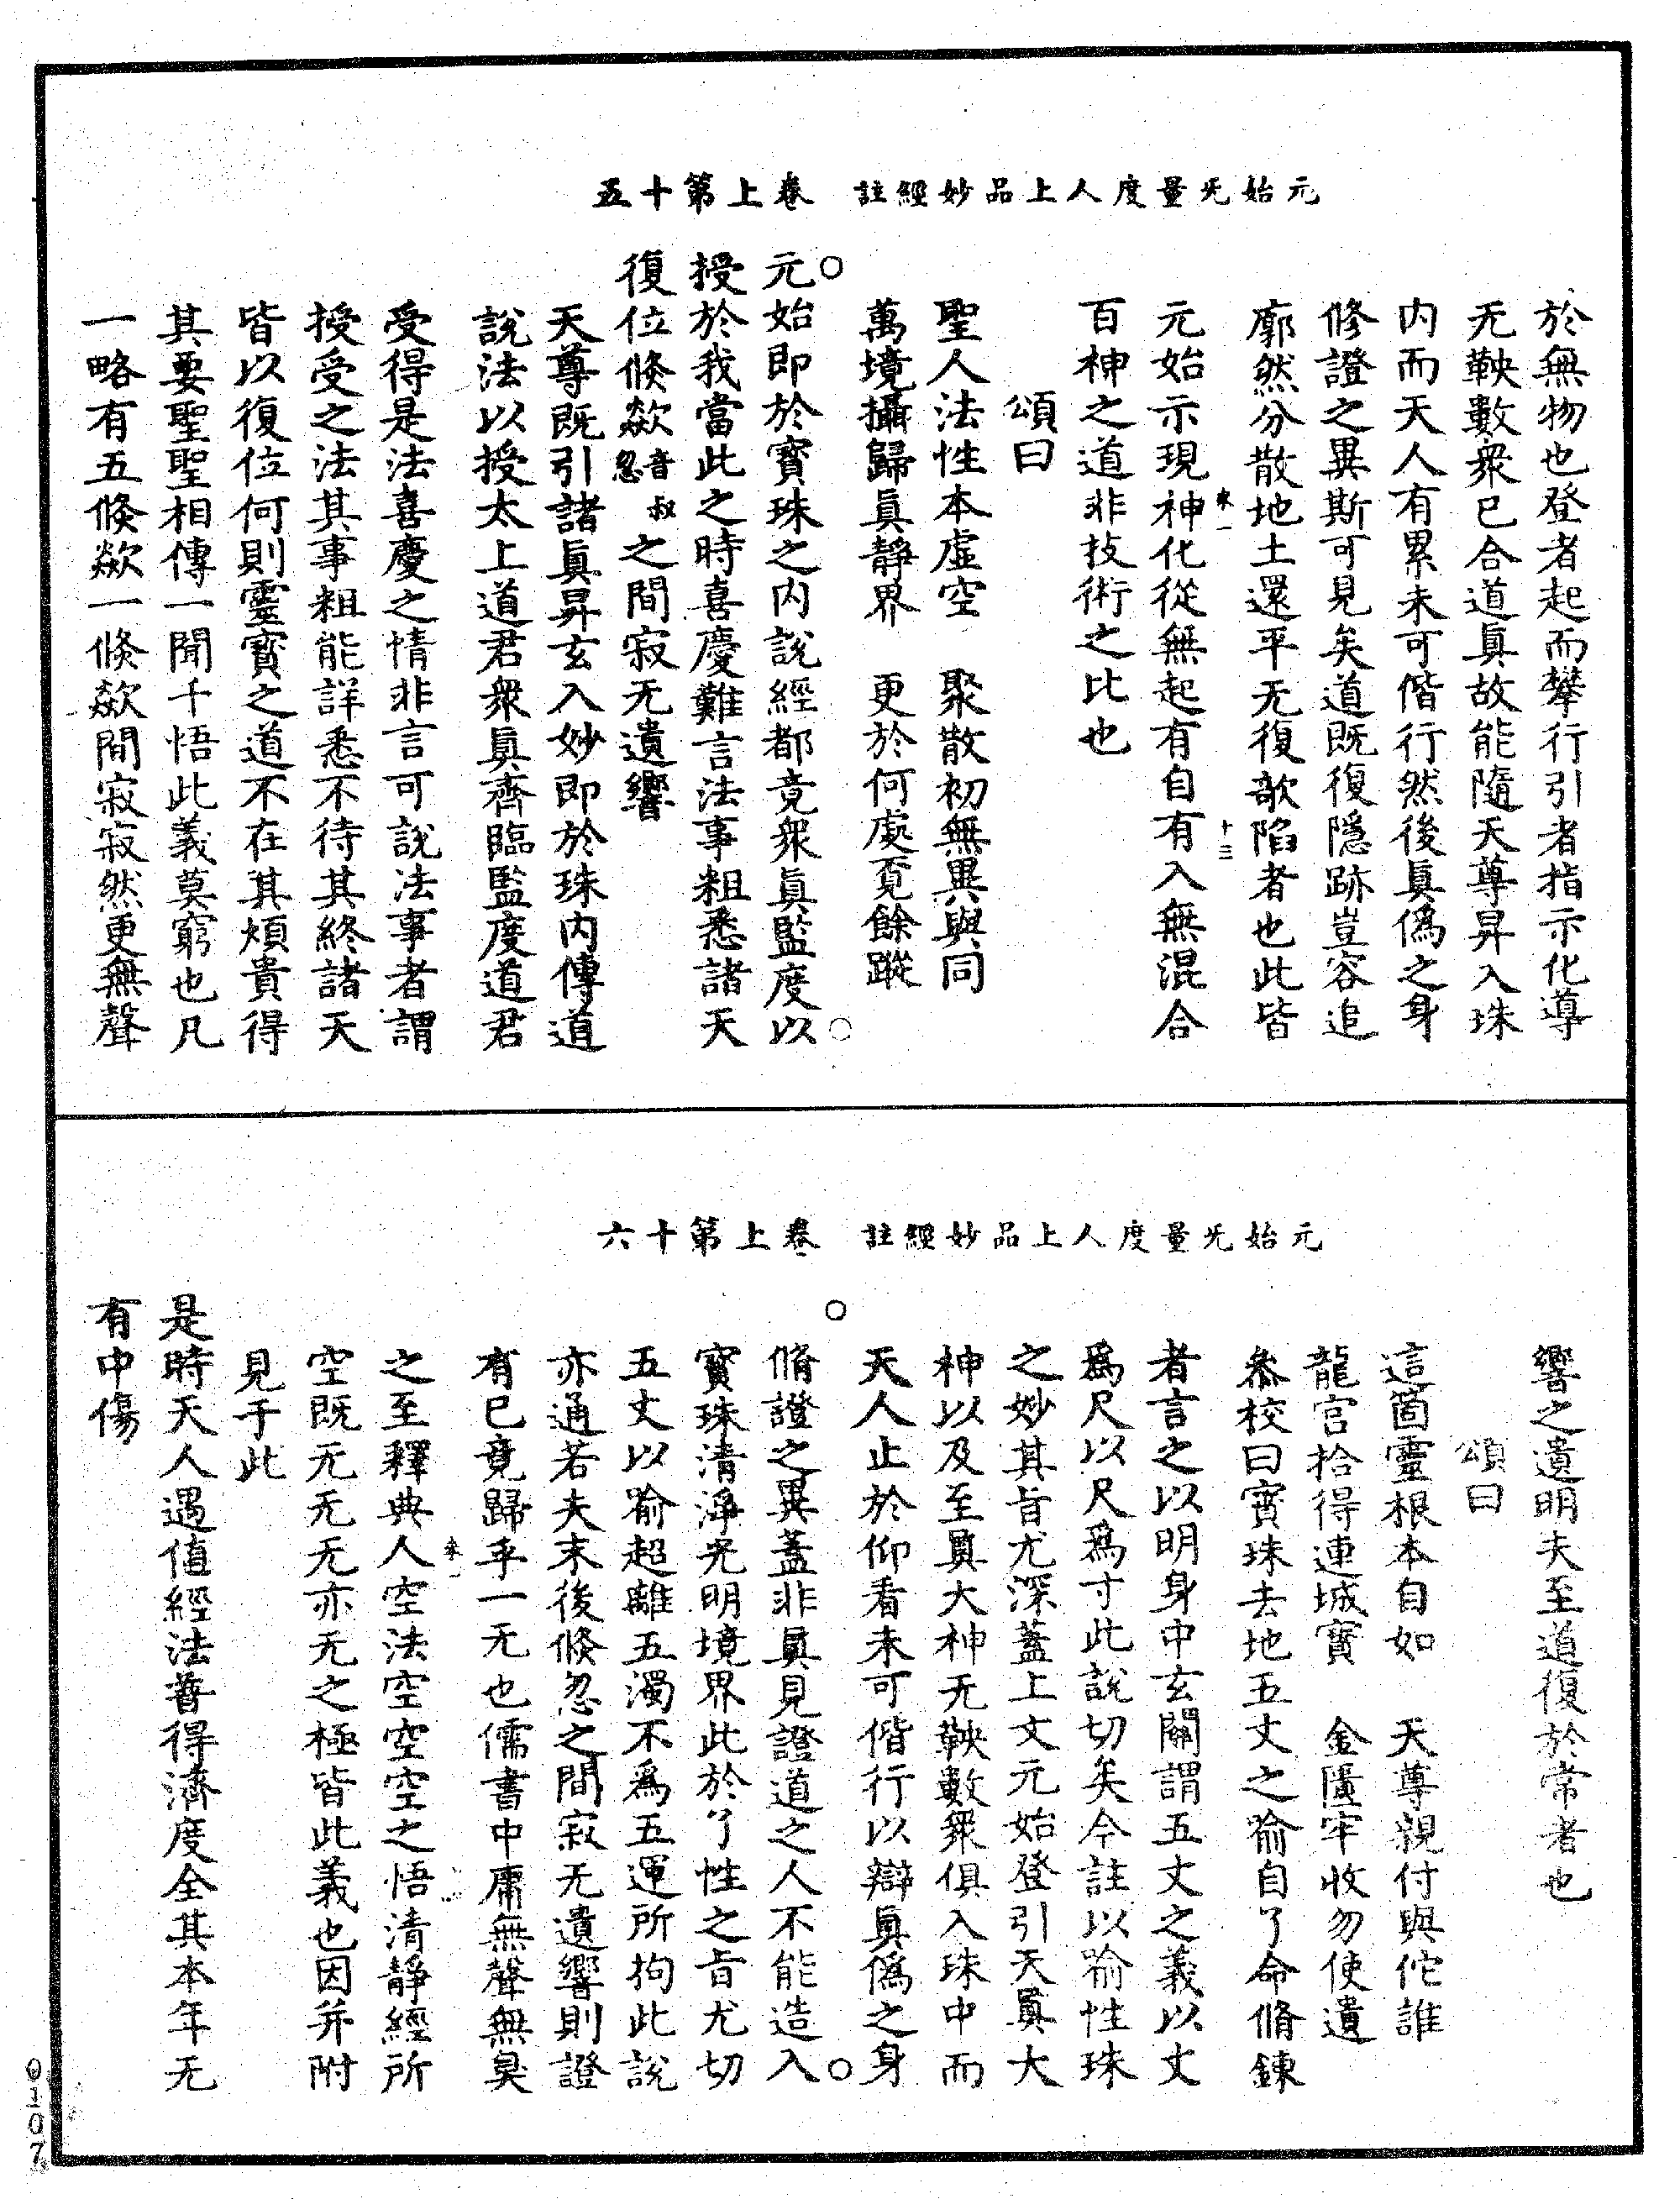 元始无量度人上品妙經註　卷上第十五
於無物也登者起而攀行引者指示化導
无鞅數衆已合道眞故能隨天尊昇入珠
内而天人有累未可偕行然後眞僞之身
修證之異斯可見矣道既復隱跡豈容追
廓然分散地土還平无復欹陷者也此皆
元始示現神化從無起有自有入無混合
百神之道非技術之比也
頌曰
聖人法性本虛空　聚散初無異與同
萬境攝歸眞靜界　更於何處覓餘蹤
元始即於寳珠之内說經都竟衆眞監度以
授於我當此之時喜慶難言法事粗悉諸天
復位倐歘音叔忽之間寂无遺響
天尊既引諸眞昇玄入妙即於珠内傳道
說法以授太上道君衆眞齊臨監度道君
受得是法喜慶之情非言可說法事者謂
授受之法其事粗能詳悉不待其終諸天
皆以復位何則靈寳之道不在其煩貴得
其要聖聖相傳一聞千悟此義莫窮也凡
一略有五倐歘一倐歘間寂寂然更無聲
元始无量度人上品妙經註　卷上第十六
響之遺明夫至道復於常者也
頌曰
這箇靈根本自如　天尊親付與佗誰
龍宫拾得連城寳　金匱牢收勿使遺
叅校曰寳珠去地五丈之喻自了命脩鍊
者言之以明身中玄關謂五丈之義以丈
爲尺以尺爲寸此說切矣今註以喻性珠
之妙其旨尤深蓋上文元始登引天眞大
神以及至眞大神无鞅數衆俱入珠中而
天人止於仰看未可偕行以辯眞僞之身
脩證之異蓋非眞見證道之人不能造入
寳珠清淨光明境界此於了性之旨尤切
五丈以喻超離五濁不爲五運所拘此說
亦通若夫末後倐忽之間寂无遺響則證
有已竟歸乎一无也儒書中庸無聲無臭
之至釋典人空法空空空之悟清靜經所
空既无无无亦无之極皆此義也因并附
見于此
是時天人遇值經法普得濟度全其本年无
有中傷
0107